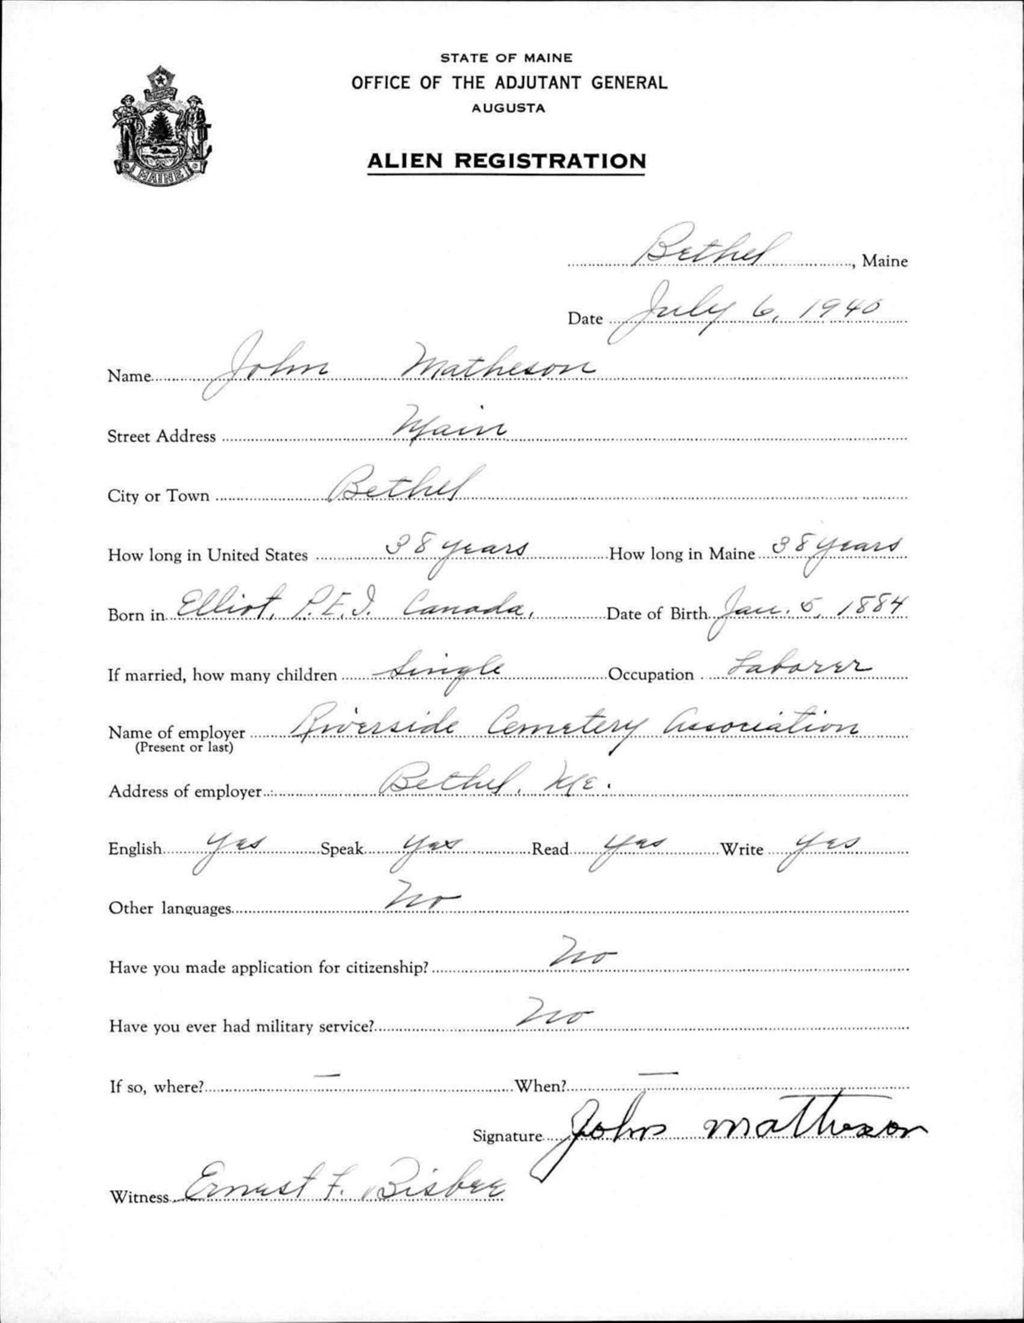 STATE OF MAINE
OFFICE OF THE ADJUTANT GENERAL
AUGUSTA
MAINE
ALIEN REGISTRATION
Bethel, Maine
Date July 6, 1940
Name John Matheson
Street Address Main
City or Town Bethel
How long in United States 38 years How long in Maine 38 years
Born in Elliot, P.E.I. Canada, Date of Birth Jan. 5, 1884
If married, how many children Single Occupation Laborer
Name of employer Riverside Cemetery Association
(Present or last)
Address of employer Bethel, Me.
English Yes Speak Yes Read Yes Write Yes
Other languages No
Have you made application for citizenship? No
Have you ever had military service? No
If so, where? — When? —
Signature John Matheson
Witness Ernest F. Bisbee